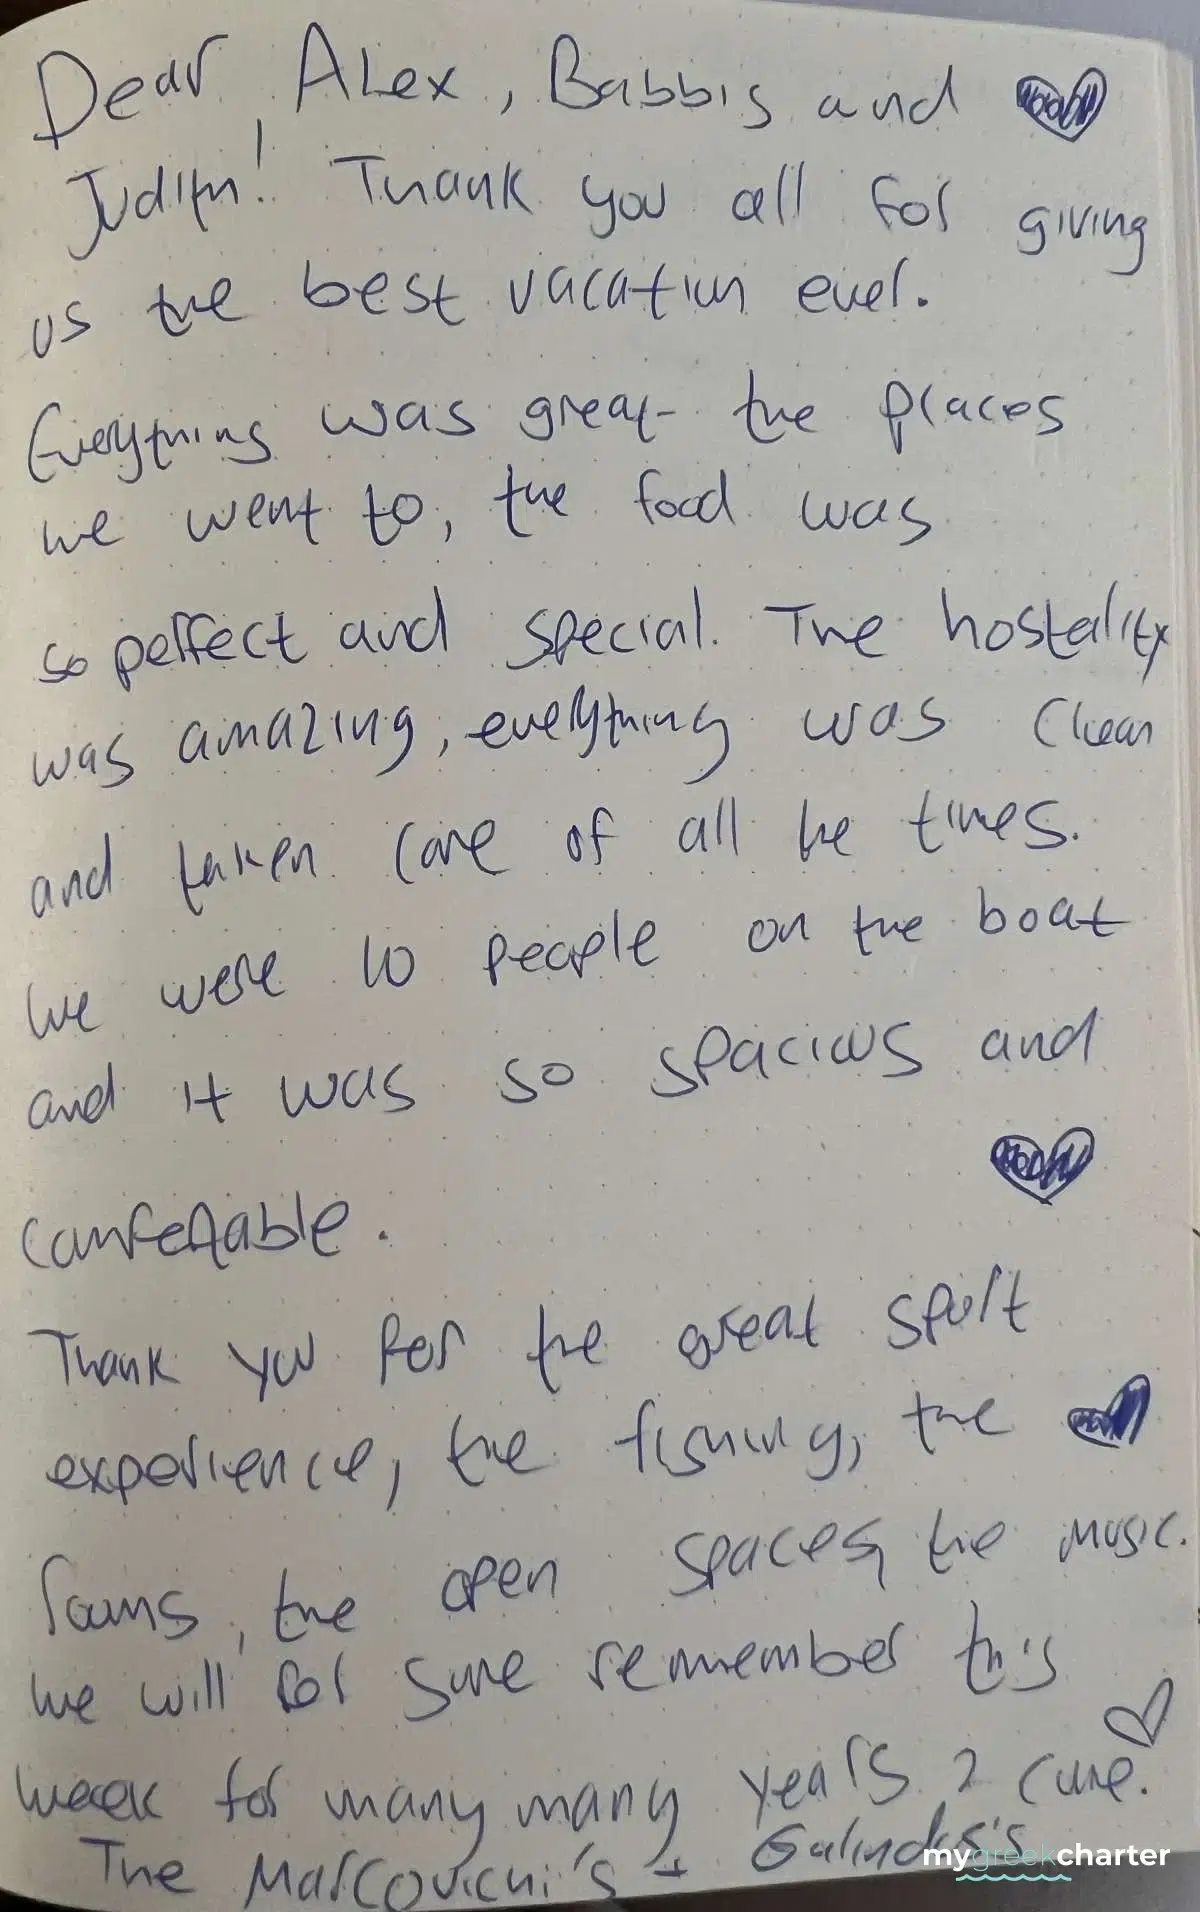 Dear Alex, Babbis and
Judith! Thank you all for giving
us the best vacation ever.
Everything was great- the places
we went to, the food was
so perfect and special. The hostelity
was amazing, everything was clean
and taken care of all he times.
We were 10 people on the boat
and it was so spacious and
comfertable.
Thank you for the great sport
experience, the fishing, the
rooms, the open spaces, the music.
We will for sure remember this
week for many many years 2 come.
The Marcovichi's + Galindos's
mygreekcharter